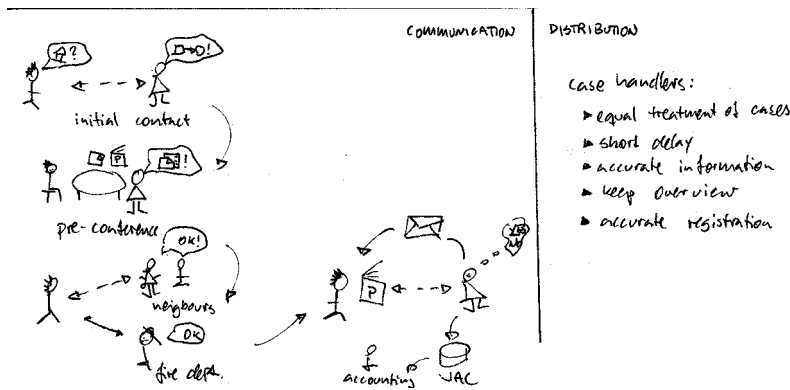 COMMUNICATION
DISTRIBUTION
?
!
initial contact
P
!
pre-conference
OK!
neigbours
OK
fire dept.
P
accounting
JAC
case handlers:
equal treatment of cases
short delay
accurate information
keep overview
accurate registration